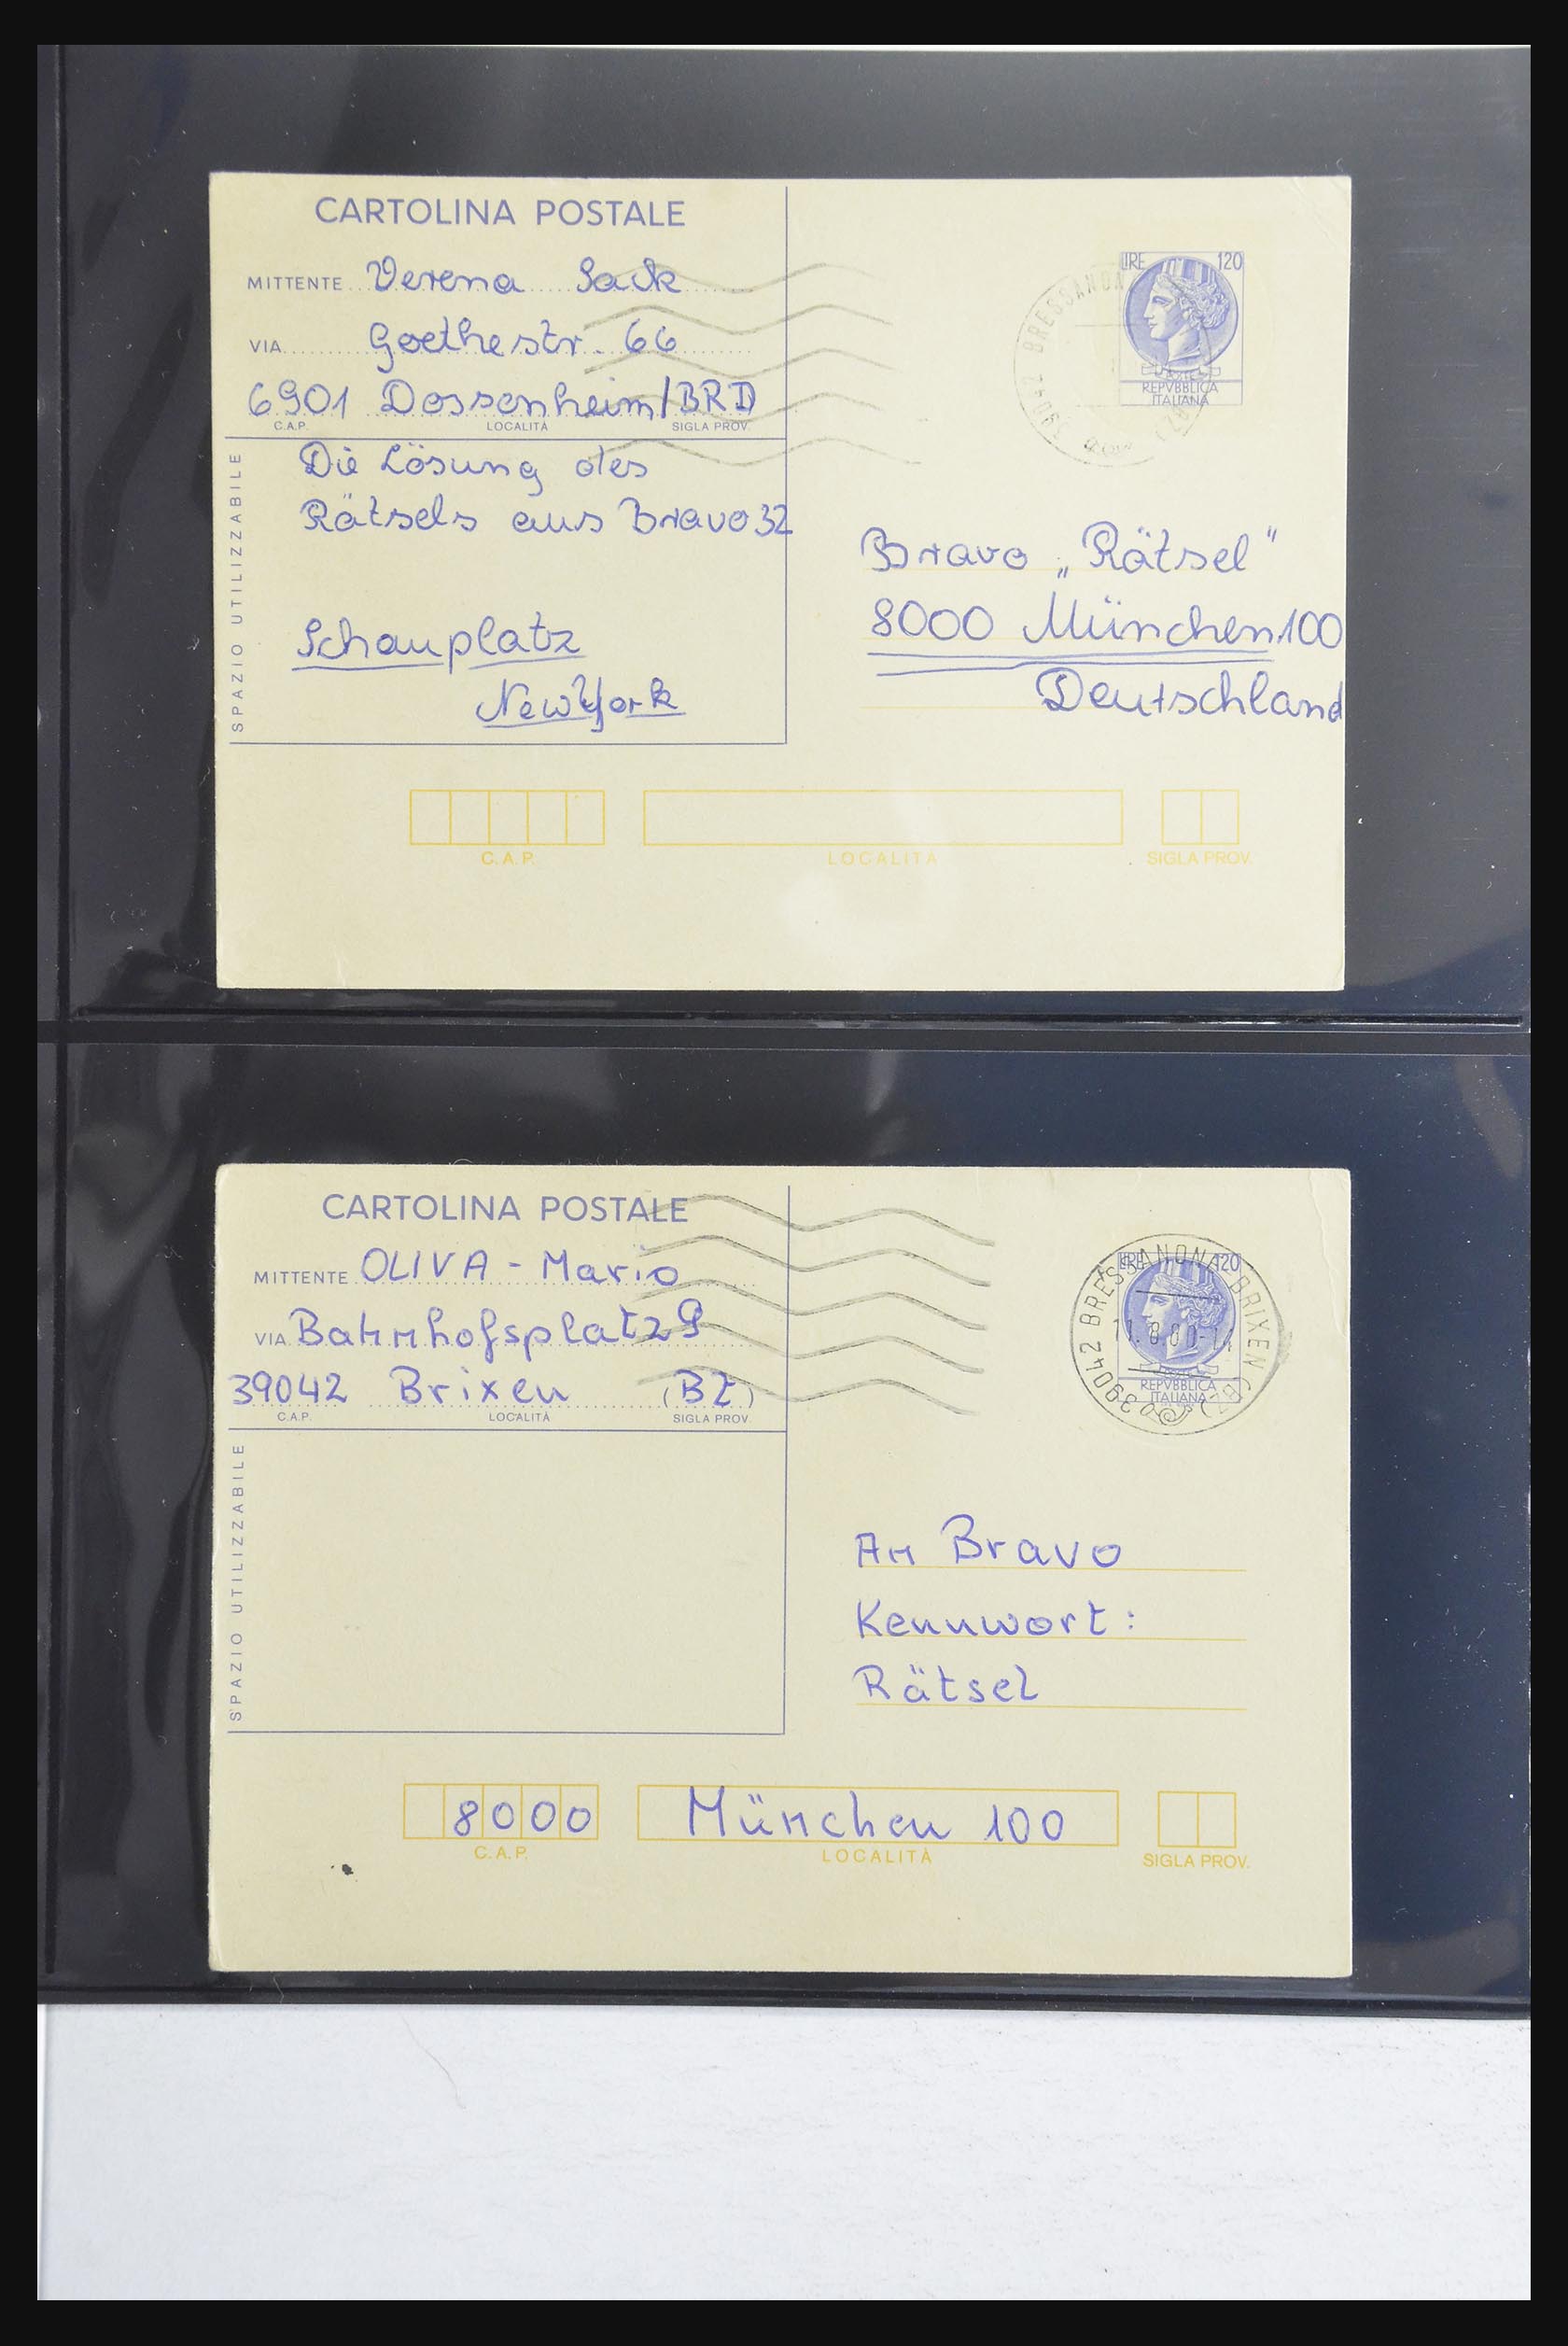 CARTOLINA POSTALE
MITTENTE Verena Sack
VIA Goethestr. 66
6901 Dossenheim/BRD
C.A.P. LOCALITÀ SIGLA PROV.
SPAZIO UTILIZZABILE
Die Lösung des
Rätsels aus Bravo 32
Schauplatz
New York
LIRE 120
REPVBBLICA
ITALIANA
39042 BRESSANONE
Bravo „Rätsel“
8000 München 100
Deutschland
C.A.P. LOCALITÀ SIGLA PROV.
CARTOLINA POSTALE
MITTENTE OLIVA - Mario
VIA Bahnhofsplatz 9
39042 Brixen (BZ)
C.A.P. LOCALITÀ SIGLA PROV.
SPAZIO UTILIZZABILE
LIRE 120
REPVBBLICA
ITALIANA
39042 BRESSANONE BRIXEN (BZ)
An Bravo
Kennwort:
Rätsel
8000 München 100
C.A.P. LOCALITÀ SIGLA PROV.